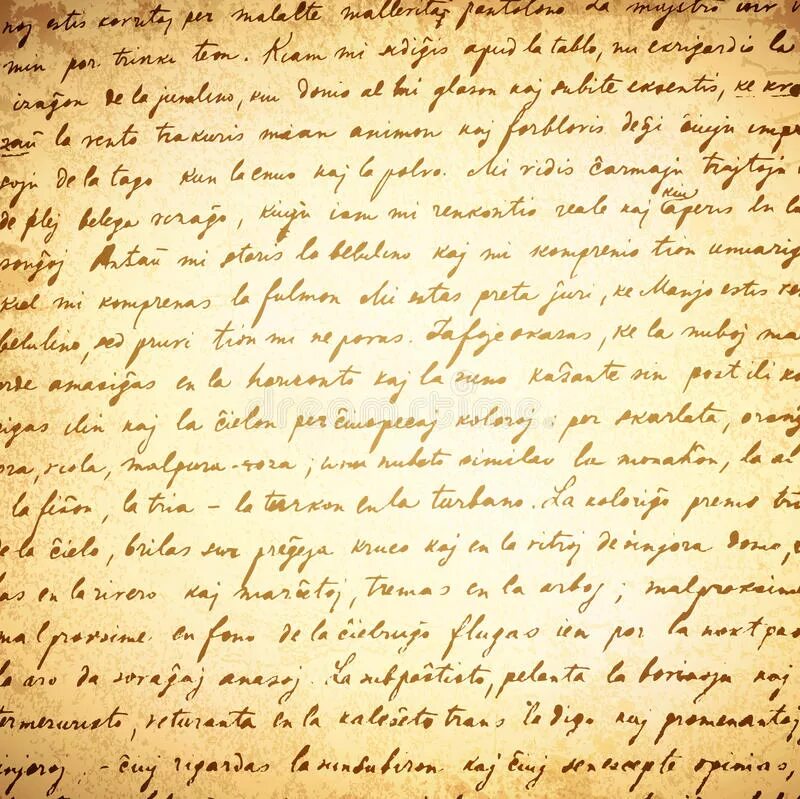 noj estis kovritaj per malalte
min por trinki teon. Kiam mi sidiĝis apud la tablo, mi ekrigardis la
vizaĝon de la junulino, kiu donis al mi glason kaj subite eksentis, ke
zaŭ la vento trakuris mian animon kaj forblovis deĝi ĉiujn impre
sojn de la tago kun la enuo kaj la polvo. Mi vidis ĉarmajn trajtojn
de plej belega vizaĝo, kiujn iam mi renkontis reale kaj kiu aperis en la
sonĝoj Antaŭ mi staris la belulino kaj mi komprenis tion unuavig
kiel mi komprenas la fulmon Mi estas preta ĵuri, ke Manjo estis
belulino, sed pruvi tion mi ne povas. Tafoje okazas, ke la nuboj
orde amasiĝas en la horizonto kaj la suno kaŝante sin post ili ko
rigas ilin kaj la ĉielon per ĉiuspecaj koloroj : por skarlata, oranĝ
ora, viola, malpura-roza ; unu nubeto similas la monaĥon, la al
la fiŝon, la tria – la turkon en la turbano. La koloriĝo premis tri
de la ĉielo, brilas sur preĝeja kruco kaj en la vitroj de sinjora domo,
as en la rivero kaj marĉetoj, tremas en la arboj ; malproksime
malproksime en fono de la ĉielruĝo flugas ien por la noktpas
la aro da sovaĝaj anasoj. La subpaŝtisto, pelanta la bovinojn kaj
termezuristo, veturanta en la kaleŝeto trans la digo kaj promenantaj
injoroj - ĉiuj rigardas la sunsubiron kaj ĉiuj senescepte opinias,